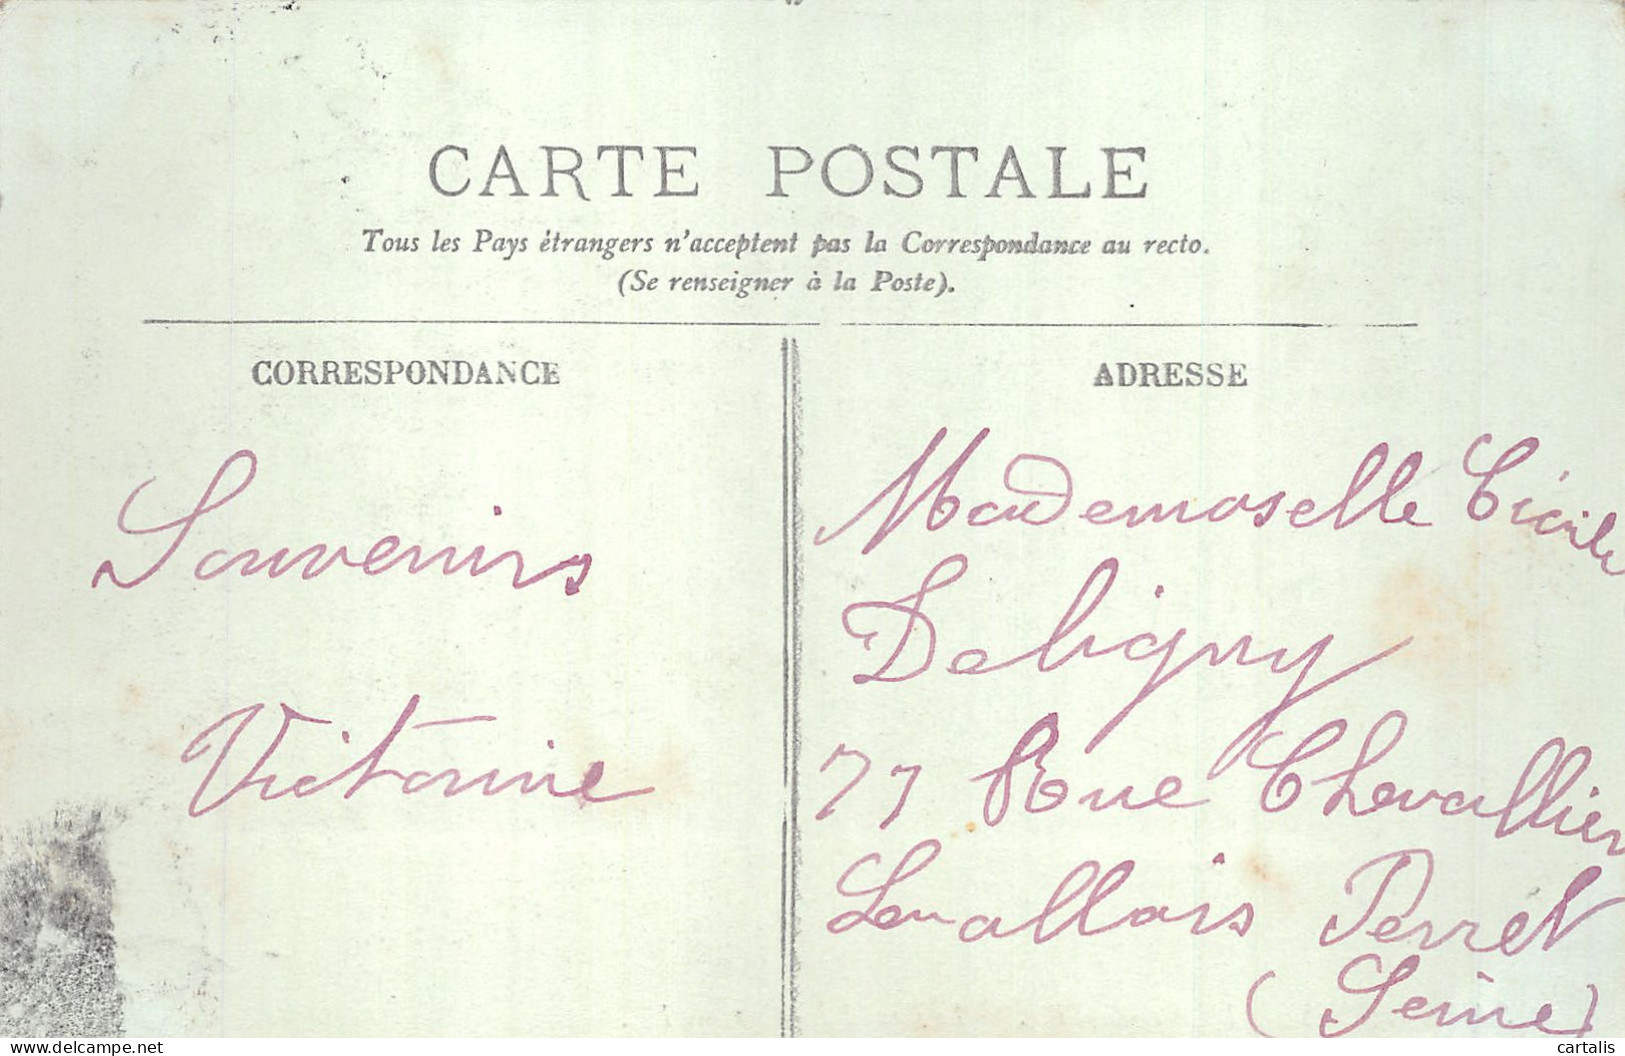 CARTE POSTALE
Tous les Pays étrangers n'acceptent pas la Correspondance au recto.
(Se renseigner à la Poste).
CORRESPONDANCE
Souvenirs
Victorine
ADRESSE
Mademoiselle Cécile
Deligny
77 Rue Chevallier
Levallois Perret
(Seine)
delcampe.net
cartalis